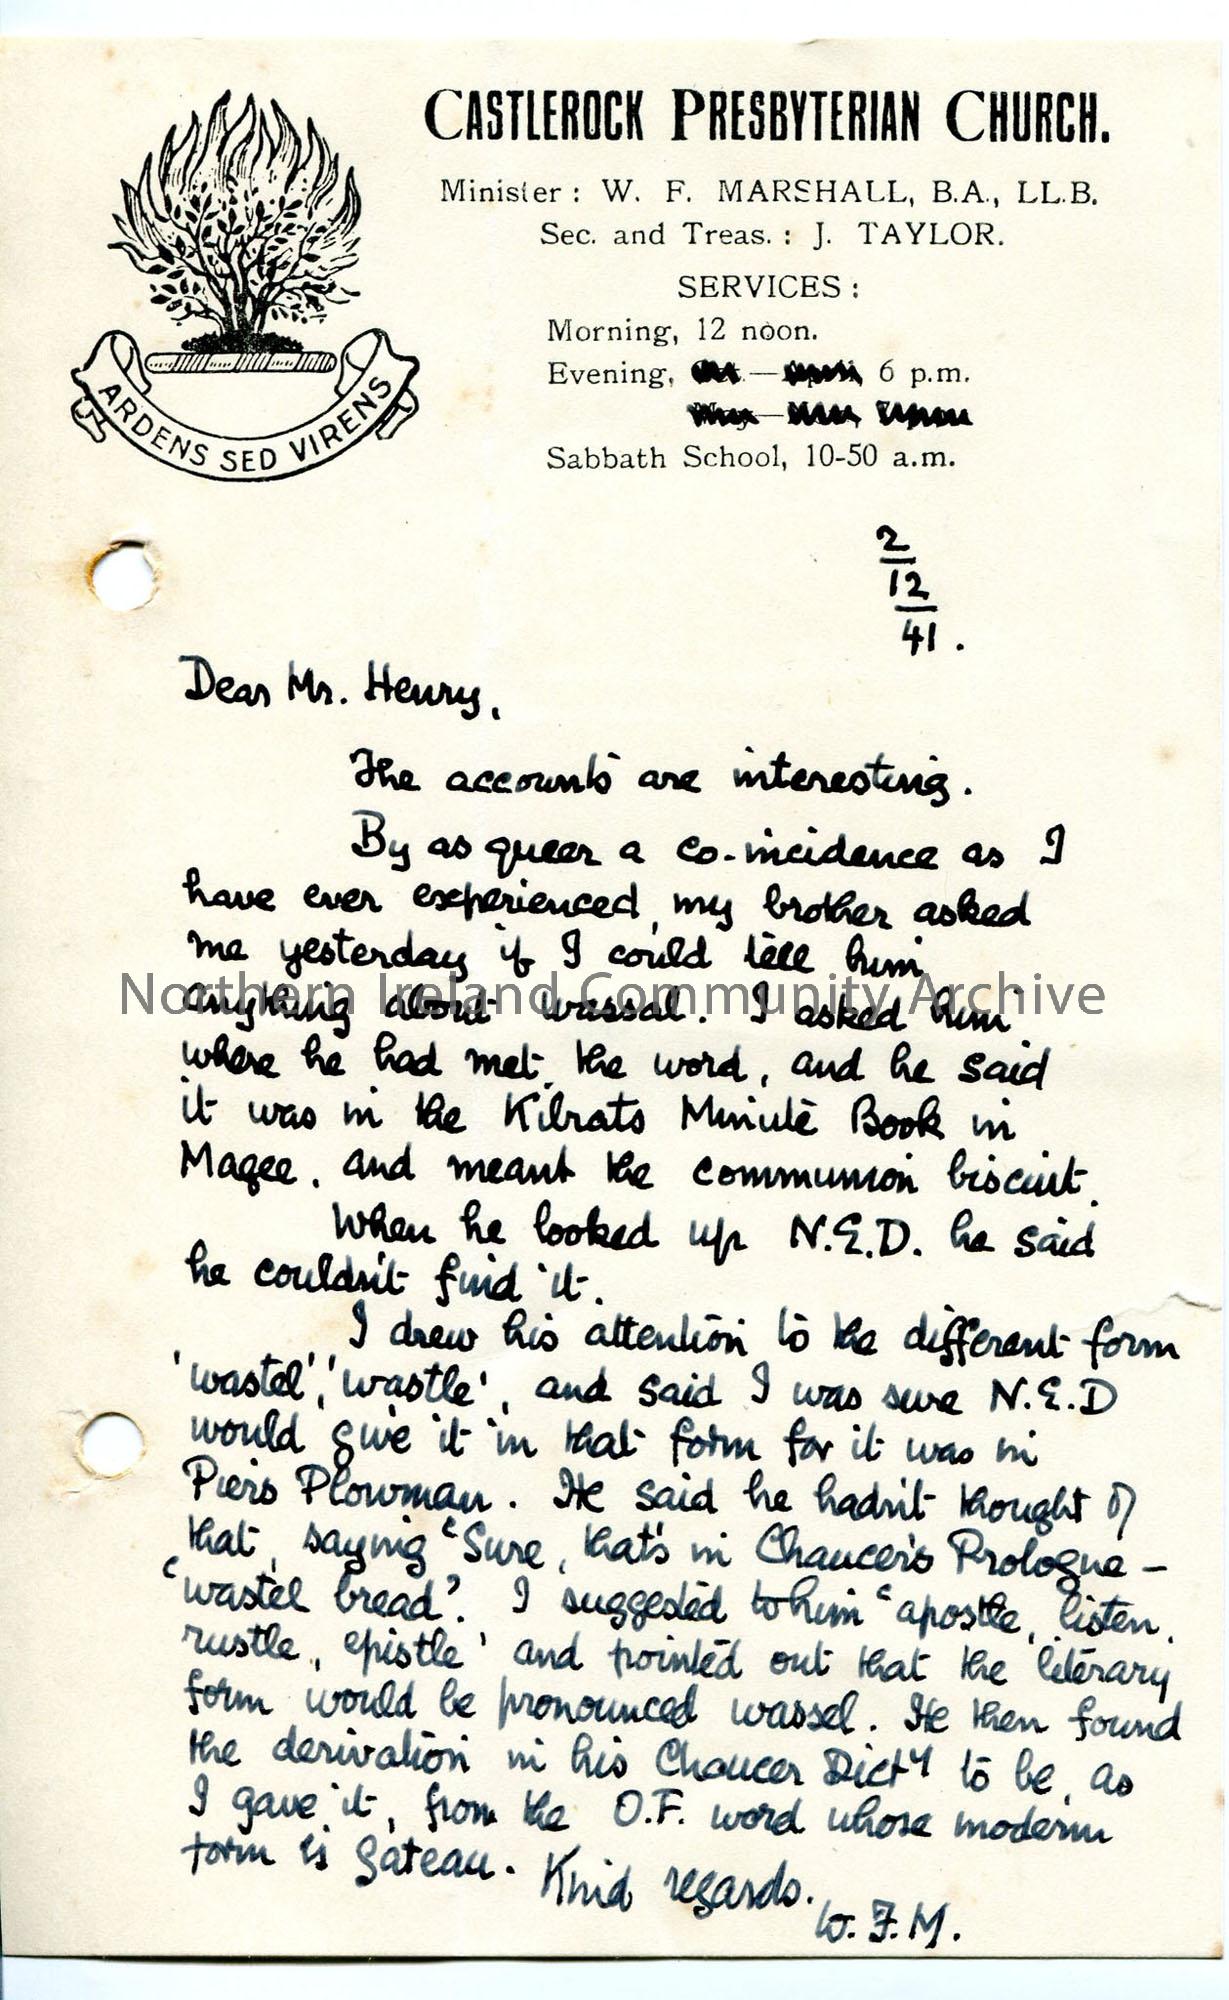 CASTLEROCK PRESBYTERIAN CHURCH.
Minister : W. F. MARSHALL, B.A., LL.B.
Sec. and Treas. : J. TAYLOR.
SERVICES :
Morning, 12 noon.
Evening, — 6 p.m.
Sabbath School, 10-50 a.m.
ARDENS SED VIRENS
2
12
41.
Dear Mr. Henry,
The accounts are interesting.
By as queer a co-incidence as I
have ever experienced, my brother asked
me yesterday if I could tell him
anything about wassal. I asked him
where he had met the word, and he said
it was in the Kilrats Minute Book in
Magee, and meant the communion biscuit.
When he looked up N.E.D. he said
he couldn't find it.
I drew his attention to the different form
'wastel', 'wastle', and said I was sure N.E.D
would give it in that form for it was in
Piers Plowman. He said he hadn't thought of
that, saying "Sure, that's in Chaucer's Prologue –
'wastel bread'. I suggested to him 'apostle, listen,
rustle, epistle' and pointed out that the literary
form would be pronounced wassel. He then found
the derivation in his Chaucer Dicty to be, as
I gave it, from the O.F. word whose modern
form is gateau. Kind regards.
W. F. M.
Northern Ireland Community Archive